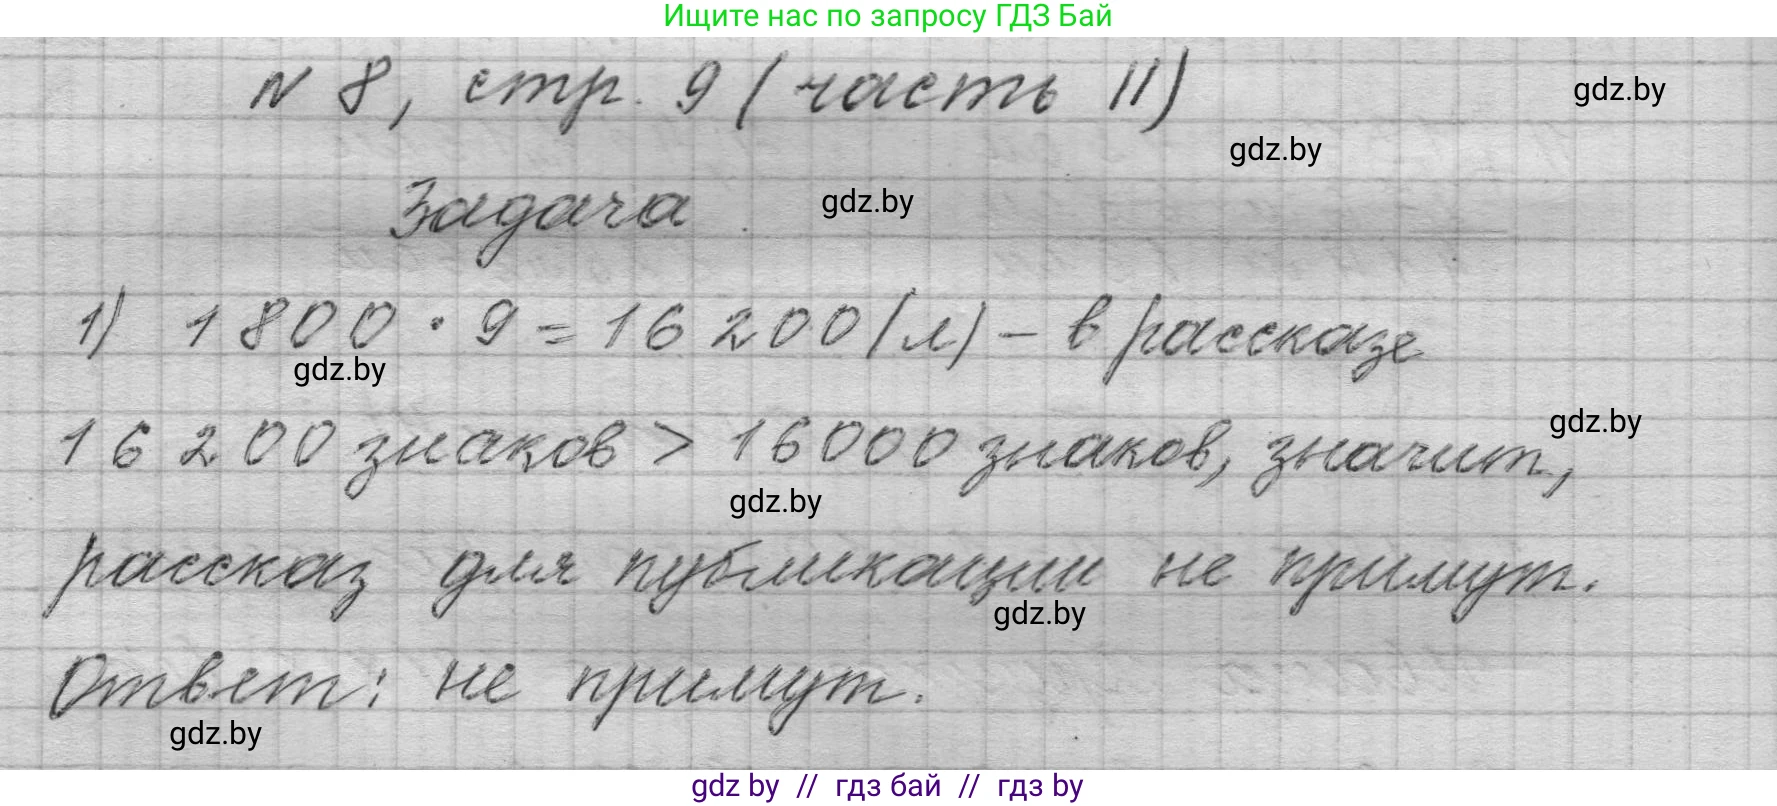 Ищите нас по запросу ГДЗ Бай
N 8, стр. 9 (часть II)
gdz.by
gdz.by
Задача
gdz.by
1) 1800 · 9 = 16 200 (л) – в рассказе
gdz.by
gdz.by
16 200 знаков > 16000 знаков, значит,
gdz.by
рассказ для публикации не примут.
gdz.by
Ответ: не примут.
gdz.by
gdz by // гдз бай // гдз by